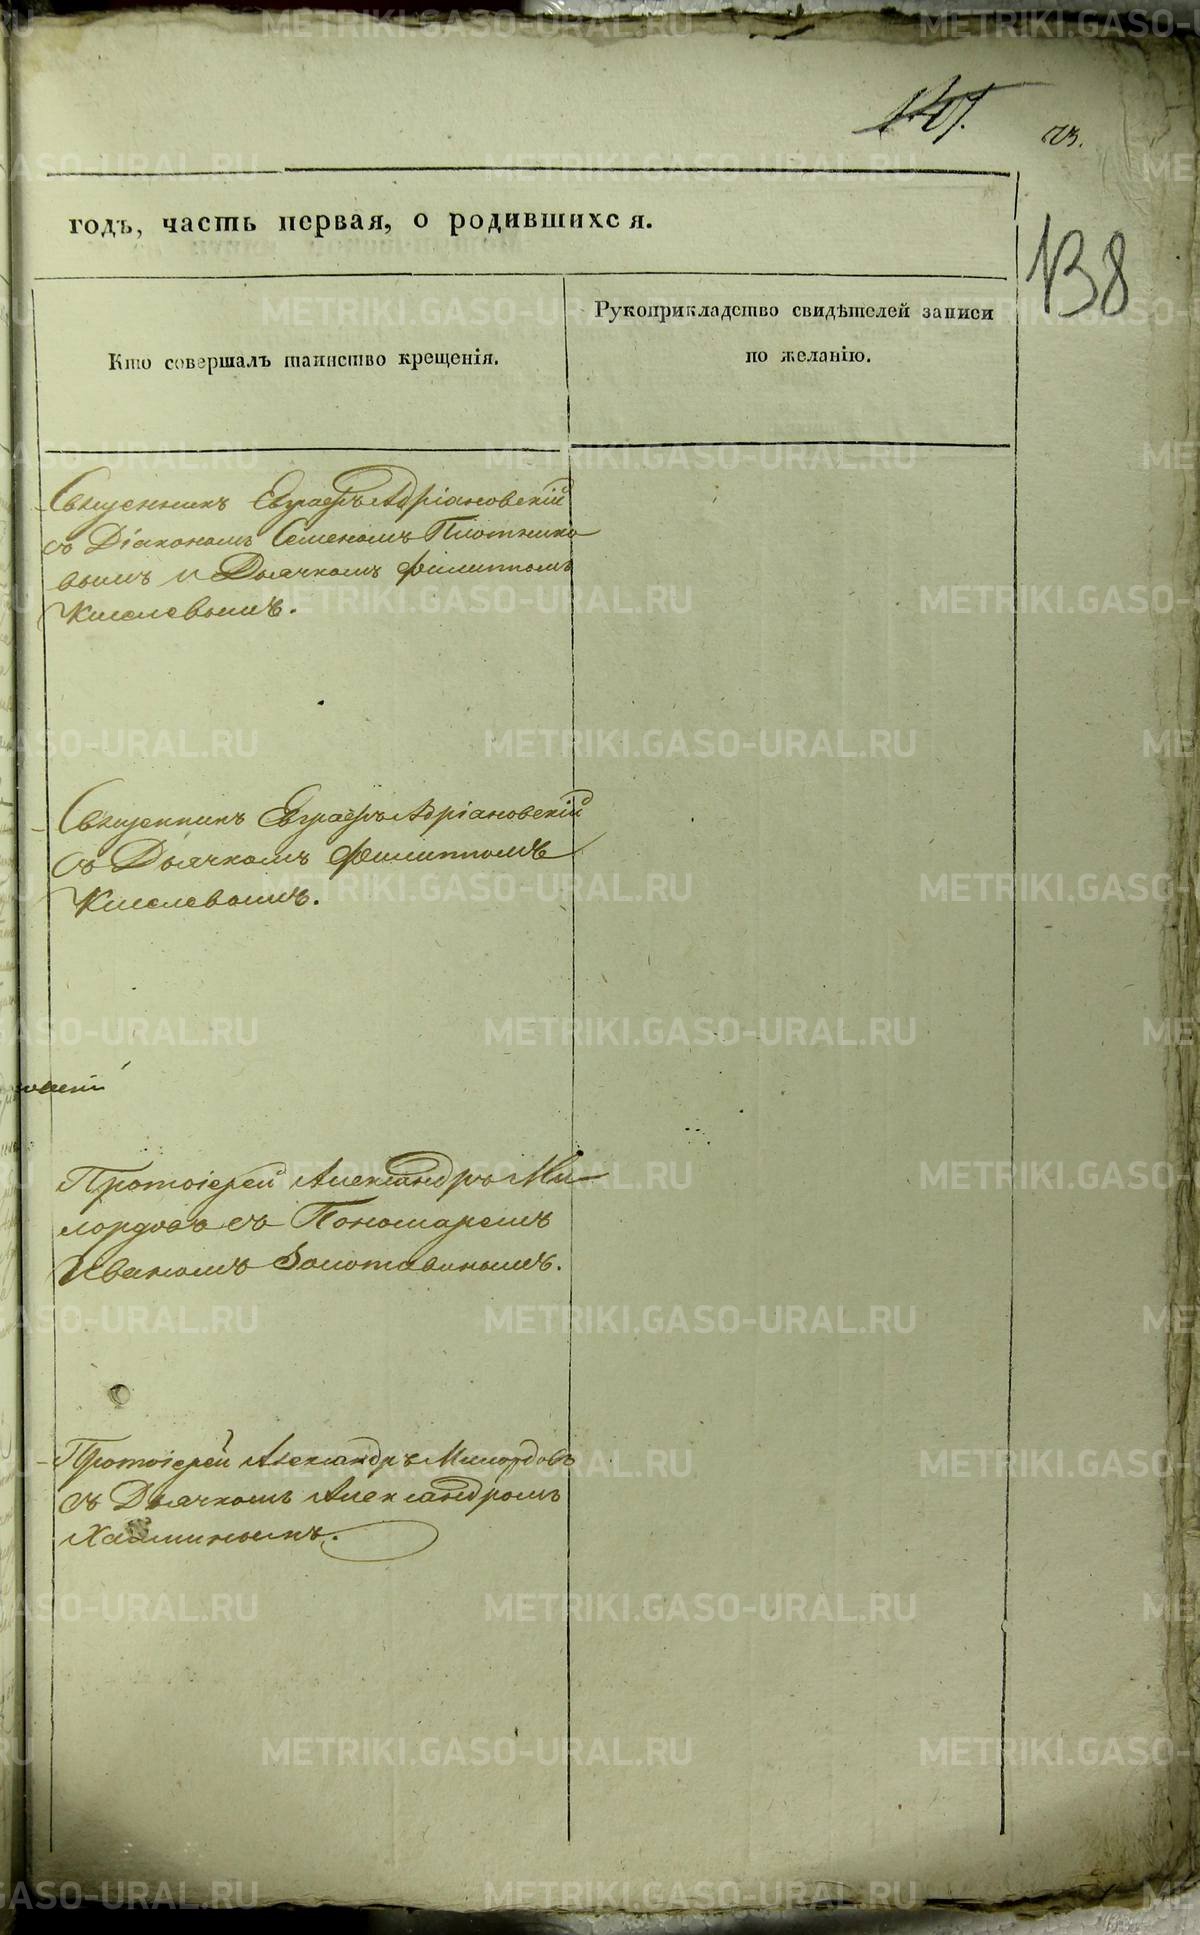 138
годъ, часть первая, о родившихся.
Кто совершалъ таинство крещенія.
Рукоприкладство свидѣтелей записи
по желанію.
Священникъ Евграфъ Адріановскій
съ Діакономъ Семеномъ Плотнико
вымъ и Дьячкомъ Филиппомъ
Киселевымъ.
Священникъ Евграфъ Адріановскій
съ Дьячкомъ Филиппомъ
Киселевымъ.
Протоіерей Александръ Ми
лордовъ съ Пономаремъ
Иваномъ Золотавинымъ.
Протоіерей Александръ Милордовъ
съ Дьячкомъ Александромъ
METRIKI.GASO-URAL.RU